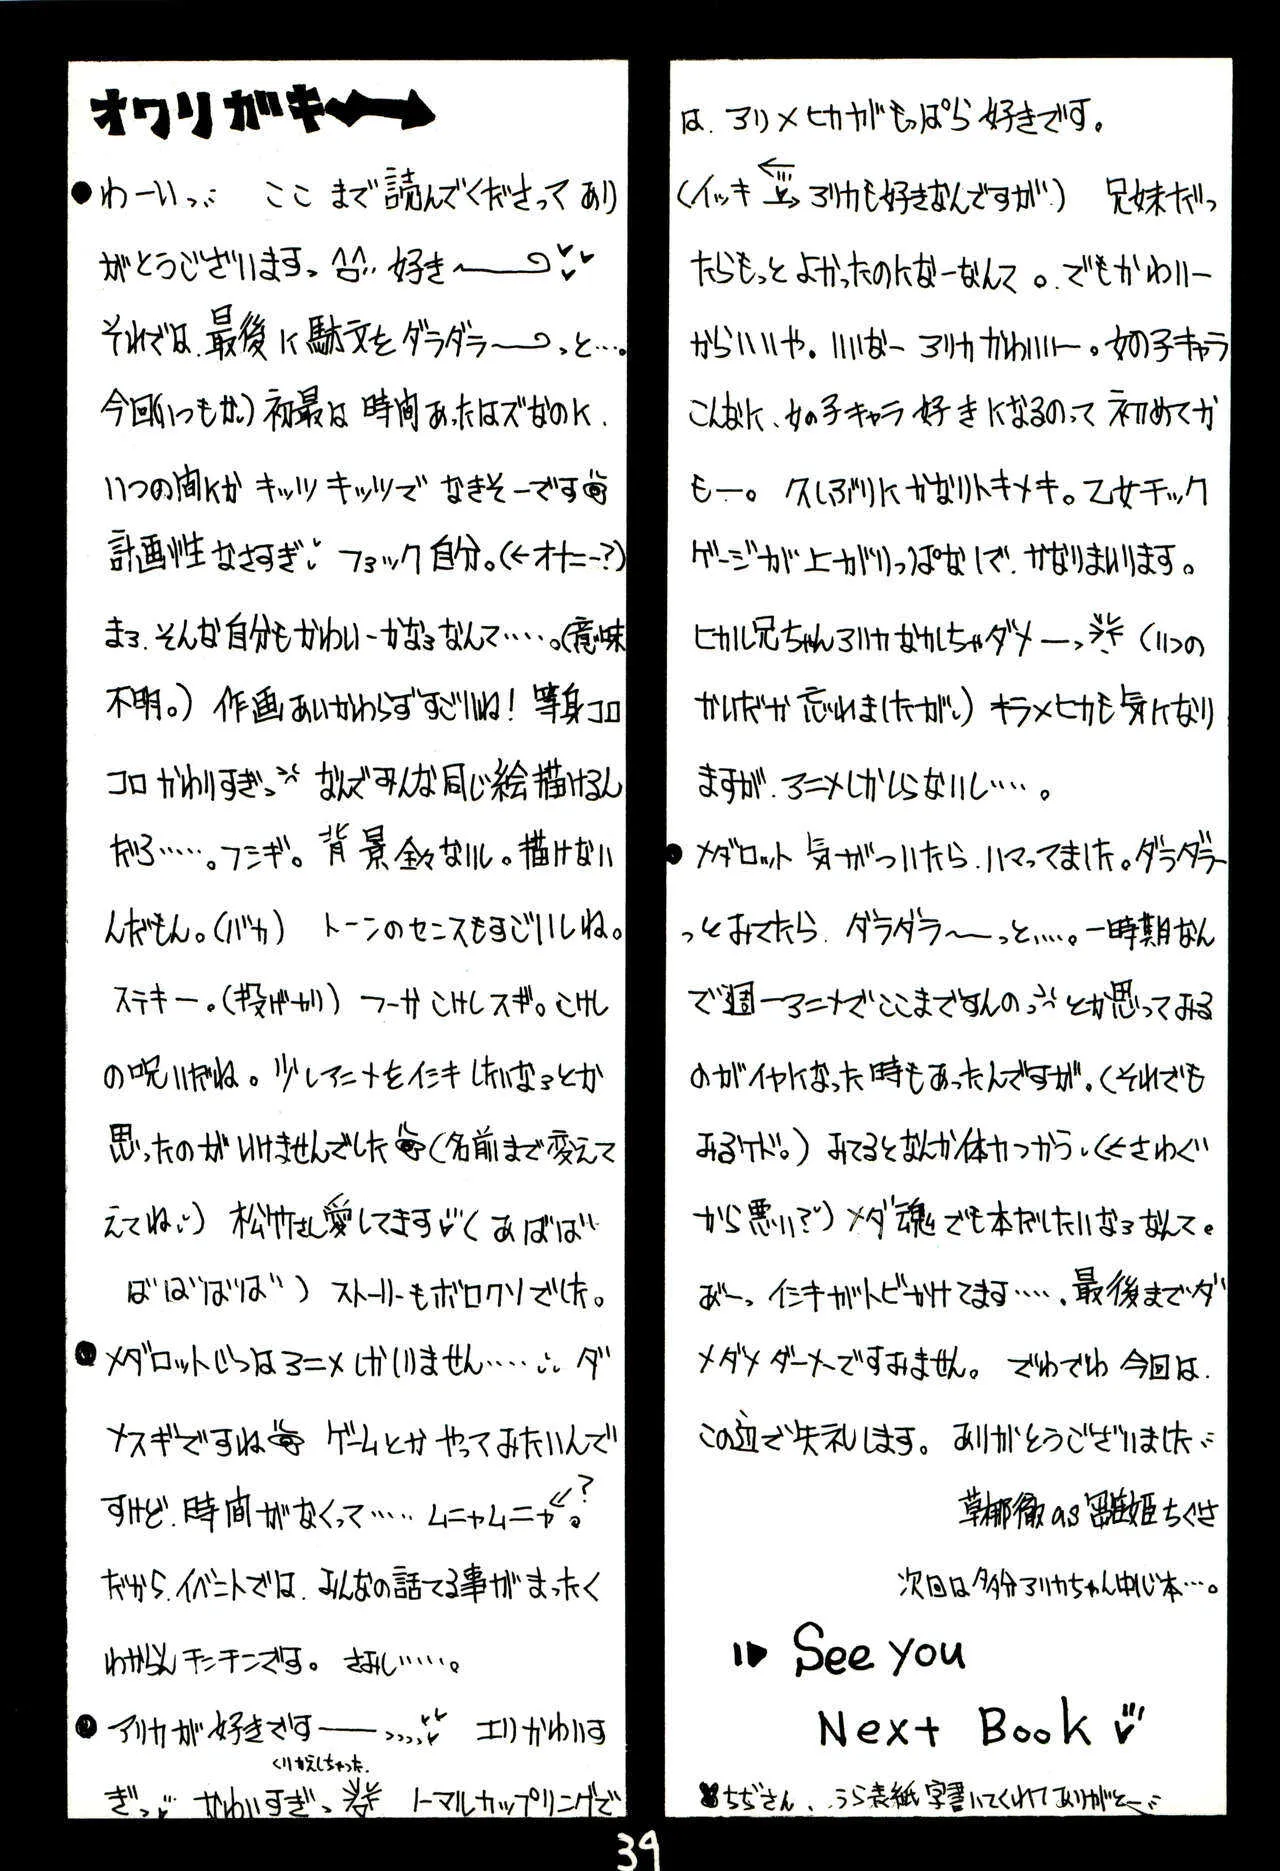 オワリガキ
●わーいっ ここまで読んでくださってあり
がとうございますっ 好き〜
それでは、最後に駄文をダラダラ〜っと…。
今回(いつもか)初最は時間あったはズなのに、
いつの間にか キッツキッツで なきそーです
計画性なさすぎ フョック自分。(←オナニー?)
まぁ、そんな自分もかわいーかなぁなんて……。(意味
不明。) 作画あいかわらずすごいね! 等身コロ
コロかわりすぎっ なんでみんな同じ絵描けるん
だろ……。フシギ。背景全々ないし。描けない
んだもん。(バカ) トーンのセンスもすごいしね。
ステキー。(投げやり) つーかこけしスギ。こけし
の呪いだね。少しアニメをイシキしたいなぁとか
思ったのがいけませんでした (名前まで変えて
えてね) 松竹さん愛してます (あばば
ばばばば) ストーリーもボロクソでした。
●メダロットじつはアニメしかしりません…… ダ
メスギですね ゲームとかやってみたいんで
すけど、時間がなくって…… ムニャムニャ ←?
だから、イベントでは、みんなの話てる事がまったく
わからんチンチンです。さみし……。
●アリカが好きです―っっっっ エリかわりす
くりかえしちゃった
ぎっ かわいすぎっ トーマルカップリングで
は、アリ×ヒカがもっぱら好きです。
(イッキ アリカも好きなんですが) 兄妹だっ
たらもっとよかったのになーなんて。でもかわいー
からいいや。いいなーアリカかわいいー。女の子キャラ
こんなに、女の子キャラ好きになるのって初めてか
もー。久しぶりにかなりトキメキ。乙女チック
ゲージが上がりっぱなしで、かなりまいります。
ヒカル兄ちゃんアリカなかしちゃダメーっ (いつの
かいだか忘れましたが) キラ×ヒカも気になり
ますが、アニメしかしらないし……。
●メダロット気がついたら、ハマってました。ダラダラー
っとみてたら、ダラダラ〜っと……。一時期なん
で週一アニメでここまですんのっ とか思ってみる
のがイヤになった時もあったんですが。(それでも
みるケド。) みてるとなんか体力つかう、(←さわぐ
から悪い?) メダ魂でも本だしたいなぁなんて。
あーっ イシキがトビかけてます……、最後までダ
メダメダーメですみません。でわでわ 今回は、
この辺で失礼します。ありがとうございました
草那徹 as 雛姫ちぐさ
次回は多分アリカちゃん中心本…。
See you
Next Book
ちぢさん、うら表紙字書いてくれてありがとー
39